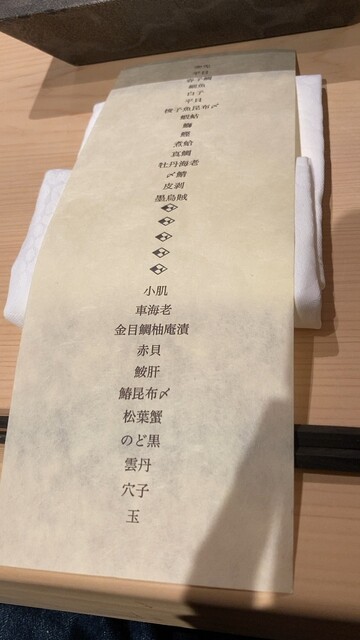 平目
春子鯛
白子
平貝
煮蛤
真鯛
牡丹海老
〆鯖
皮剥
墨烏賊
小肌
車海老
金目鯛柚庵漬
赤貝
鮟肝
鰆昆布〆
松葉蟹
のど黒
雲丹
穴子
玉